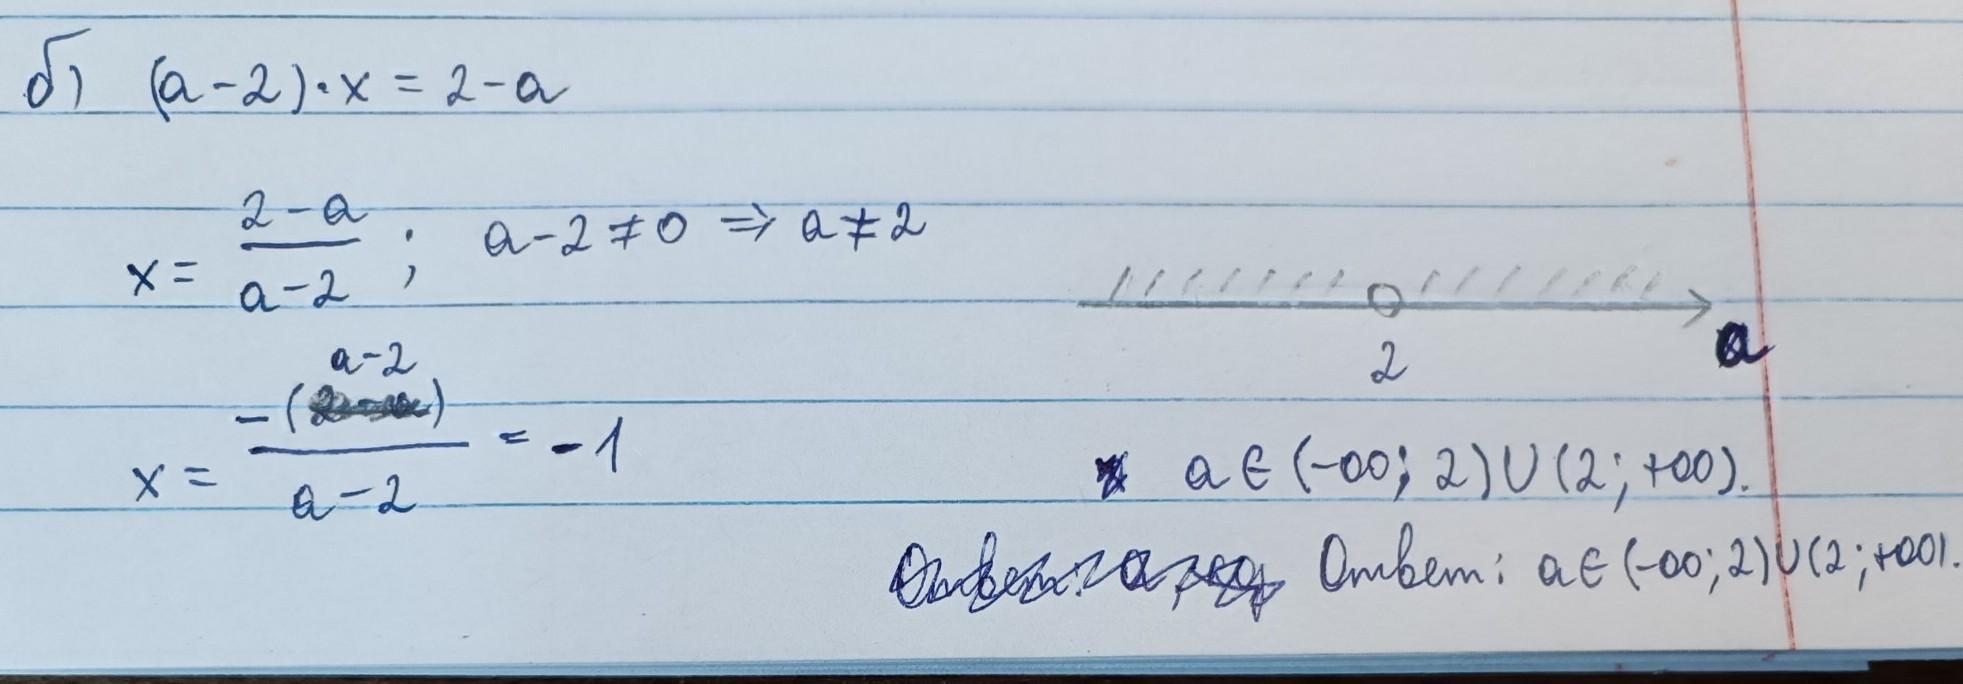 б) (a-2)·x = 2-a
x = \frac{2-a}{a-2} ; a-2≠0 ⇒ a≠2
2 a
x = \frac{-(a-2)}{a-2} = -1
a ∈ (-∞; 2) ∪ (2; +∞).
Ответ: a ∈ (-∞; 2) ∪ (2; +∞).